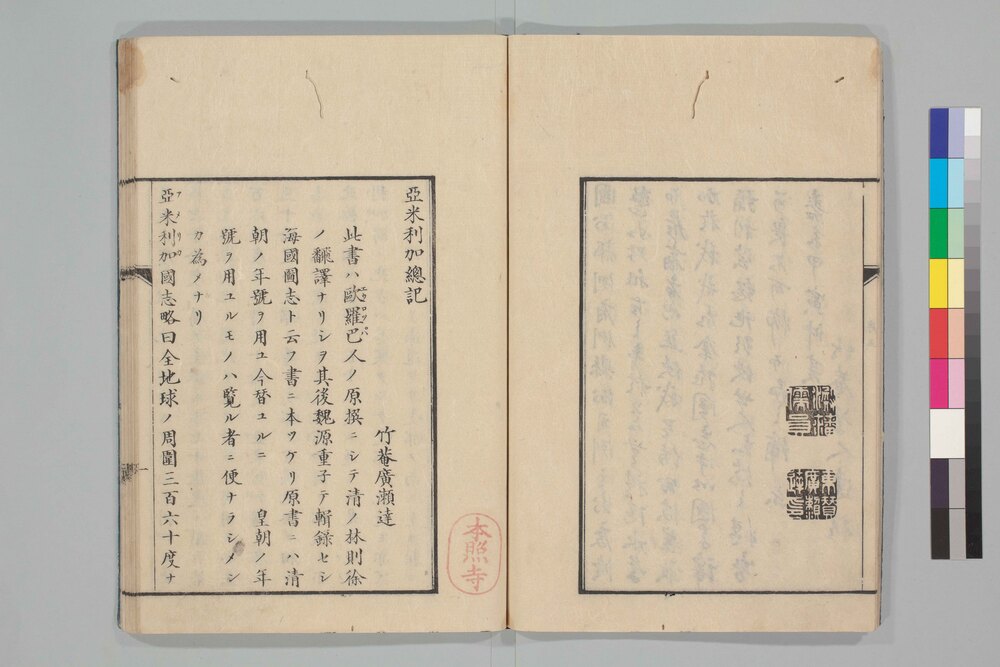 亞米利加總記
竹菴廣瀬達
此書ハ歐羅巴人ノ原撰ニシテ清ノ林則徐
ノ飜譯ナリシヲ其後魏源重子テ輯録セシ
海國圖志ト云フ書ニ本ヲグリ原書ニハ清
朝ノ年號ヲ用ユ今昝ユルニ 皇朝ノ年
號ヲ用ユルモノハ覧ル者ニ便ナラシメン
カ為メナリ
亞米利加國志略曰全地球ノ周圍三百六十度ナ
本照寺